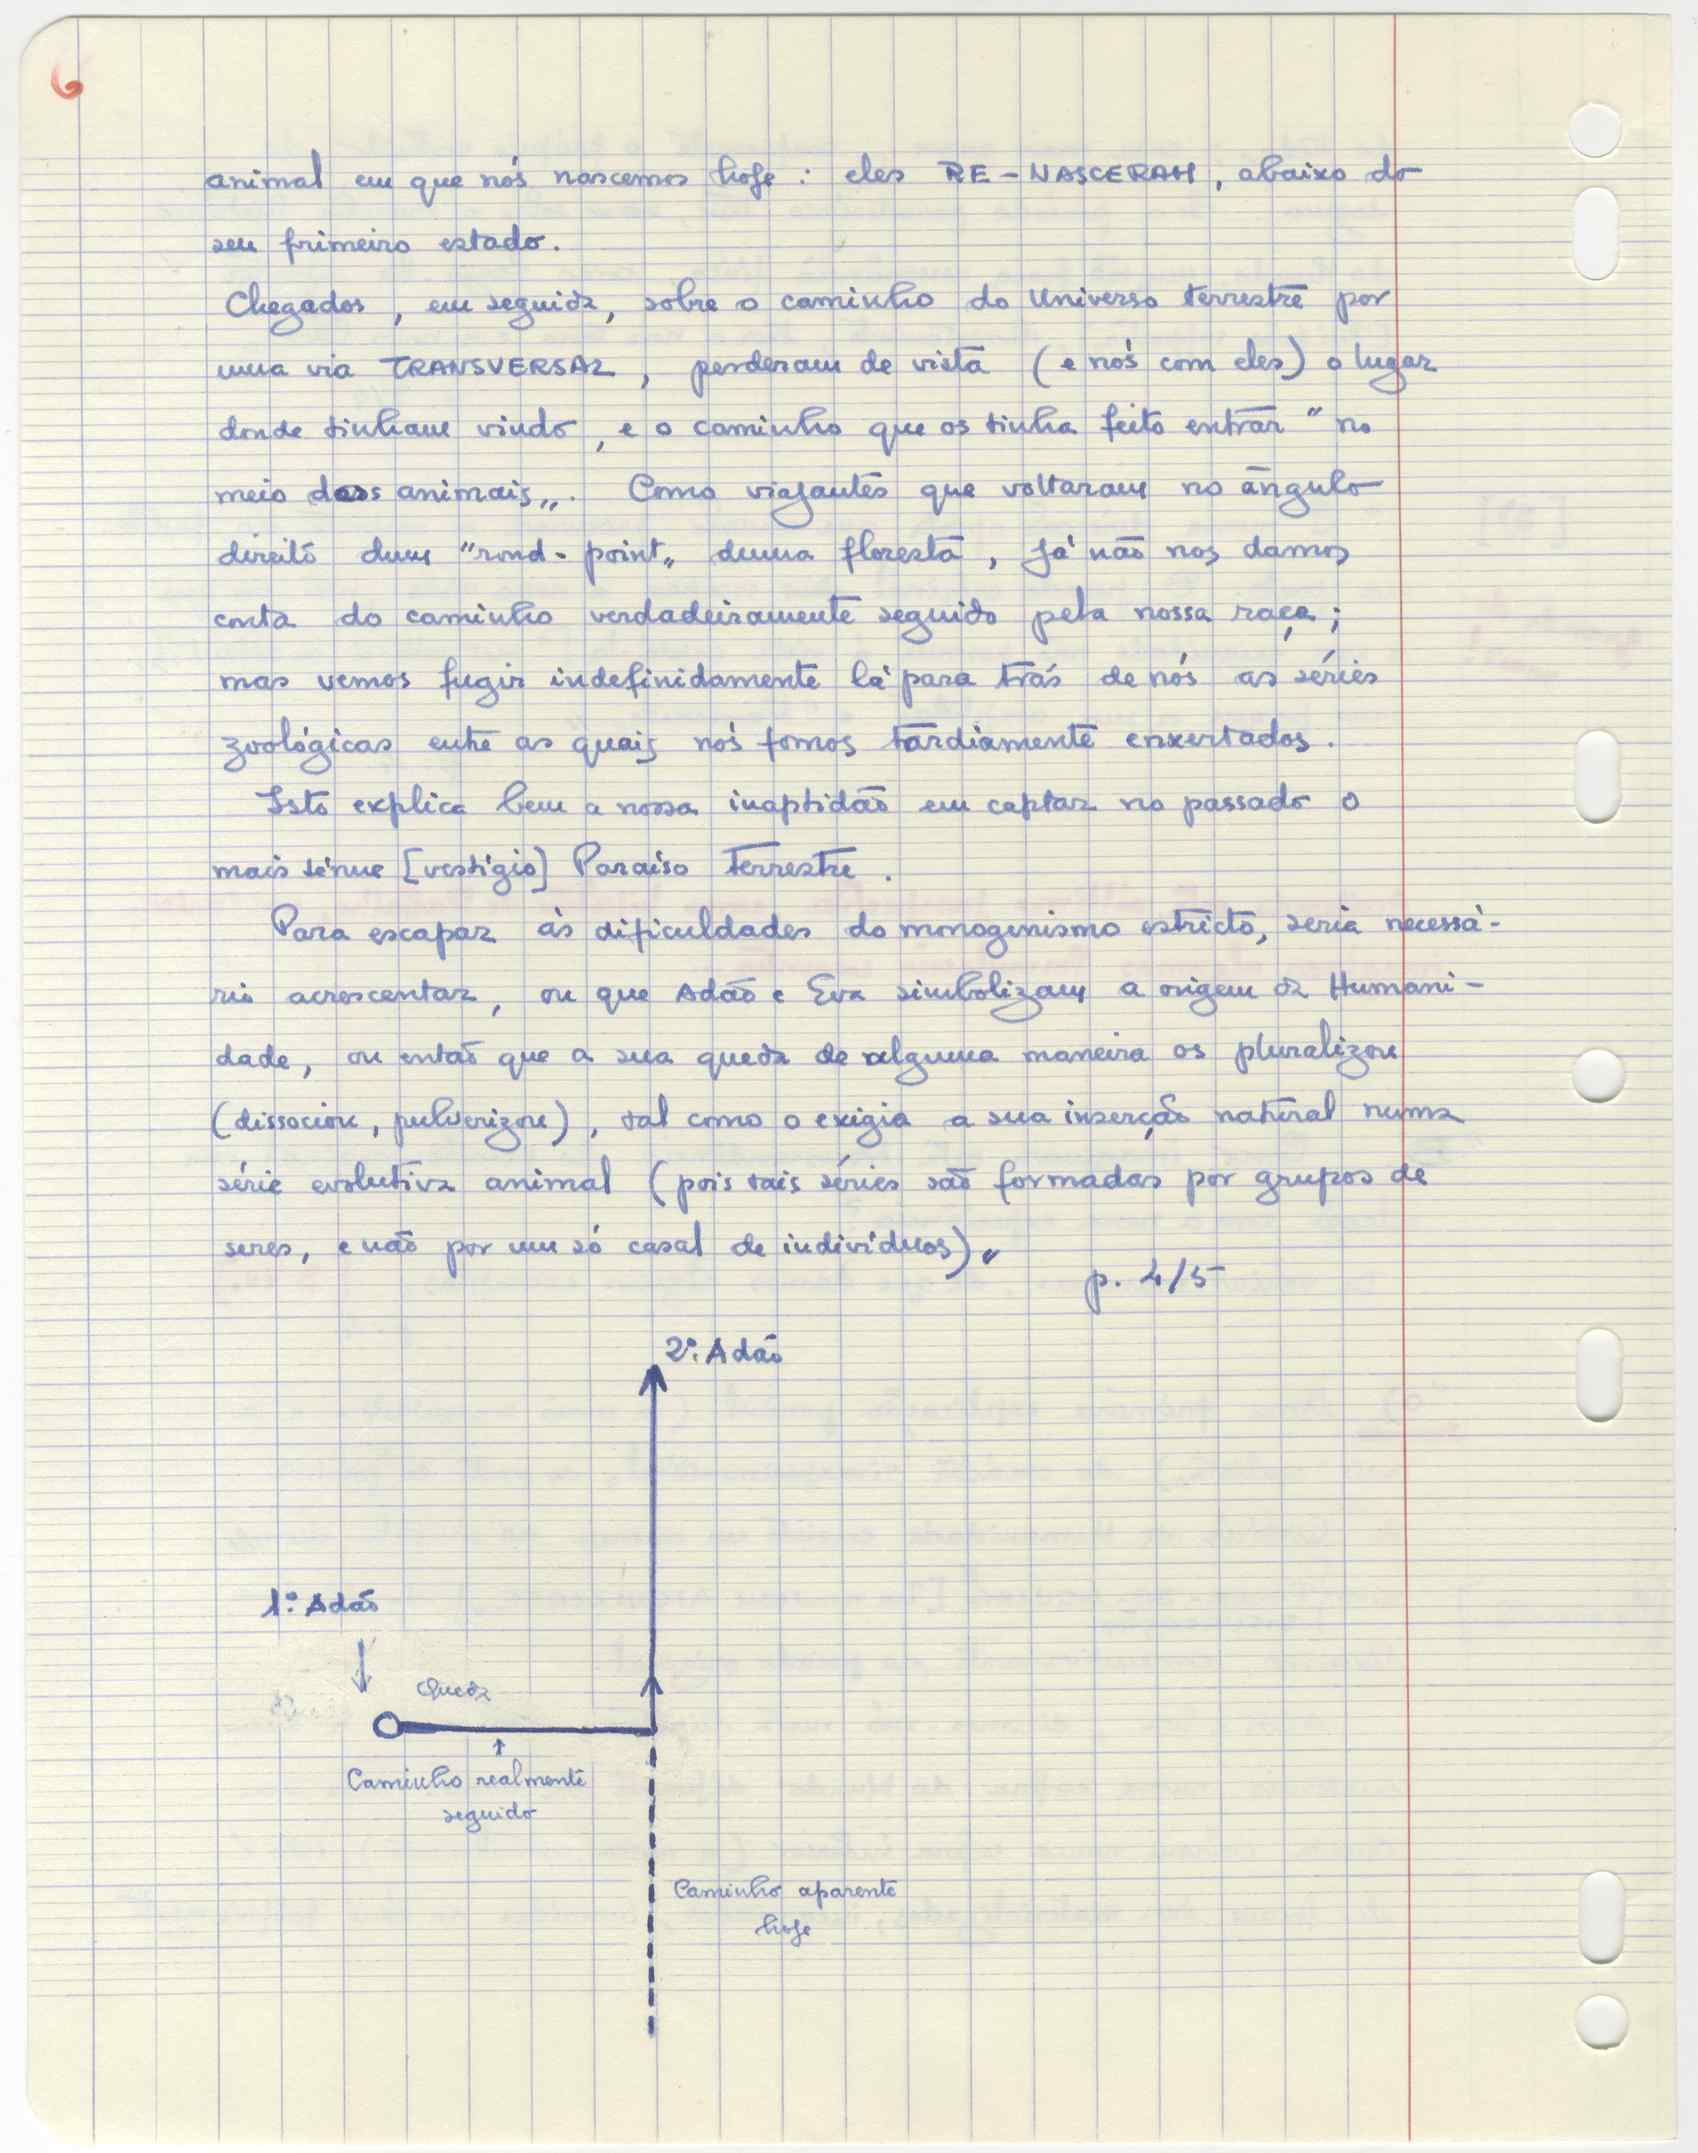 6
animal em que nós nascemos hoje : eles RE-NASCERAM, abaixo do
seu primeiro estado.
Chegados, em seguida, sobre o caminho do Universo terrestre por
uma via TRANSVERSAL, perderam de vista (e nós com eles) o lugar
donde tinham vindo, e o caminho que os tinha feito entrar "no
meio dos animais„. Como viajantes que voltaram no ângulo
direito dum "rond-point„ duma floresta, já não nos damos
conta do caminho verdadeiramente seguido pela nossa raça;
mas vemos fugir indefinidamente lá para trás de nós as séries
zoológicas entre as quais nós fomos tardiamente enxertados.
Isto explica bem a nossa inaptidão em captar no passado o
mais ténue [vestígio] Paraíso Terrestre.
Para escapar às dificuldades do monogenismo estricto, seria necessá-
rio acrescentar, ou que Adão e Eva simbolizam a origem da Humani-
dade, ou então que a sua queda de alguma maneira os pluralizou
(dissociou, pulverizou), tal como o exigia a sua inserção natural numa
série evolutiva animal (pois tais séries são formadas por grupos de
seres, e não por um só casal de indivíduos)„
p. 4/5
2º. Adão
1º. Adão
Queda
Caminho realmente
seguido
Caminho aparente
hoje